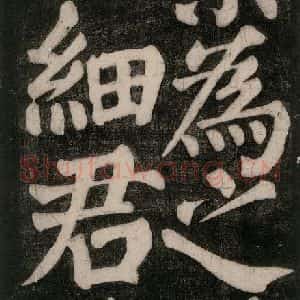 為之
細君
Shufawang.CN